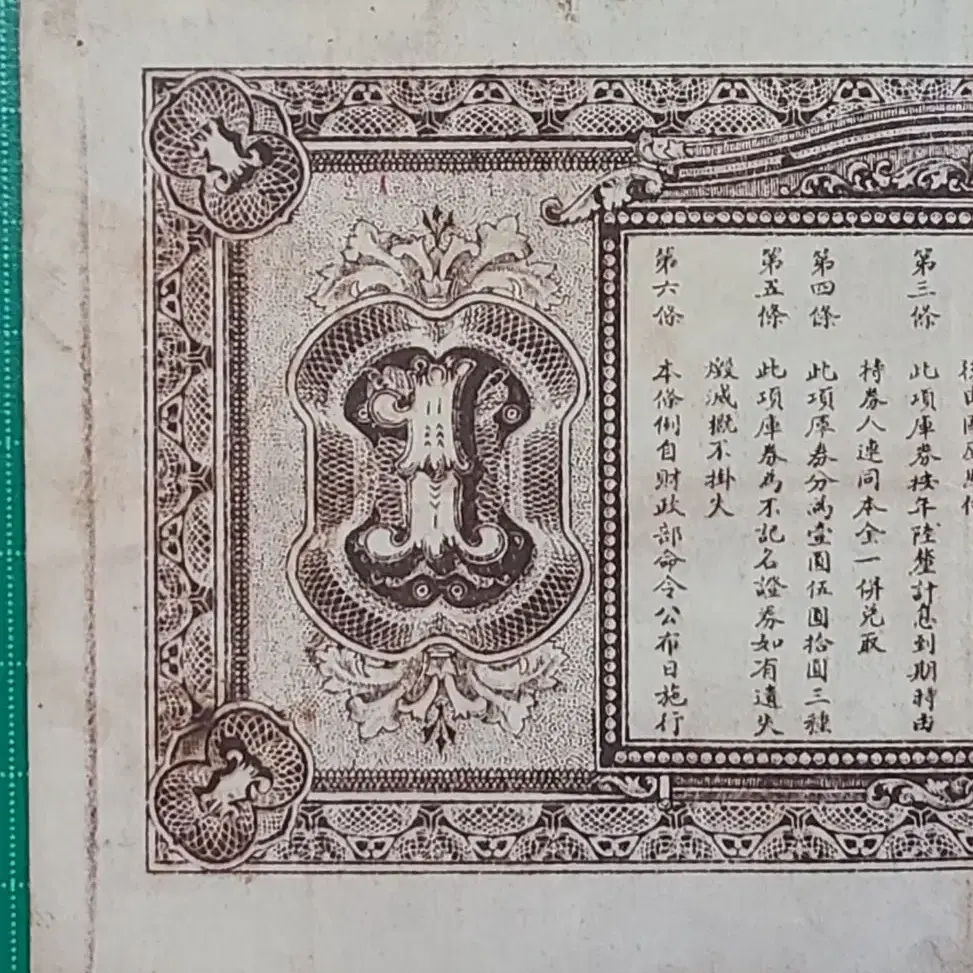 第三條 此項庫券按年陸釐計息到期時由
持券人連同本金一併兌取
第四條 此項庫券分為壹圓伍圓拾圓三種
第五條 此項庫券為不記名證券如有遺失
燬滅概不掛失
第六條 本條例自財政部命令公布日施行
1